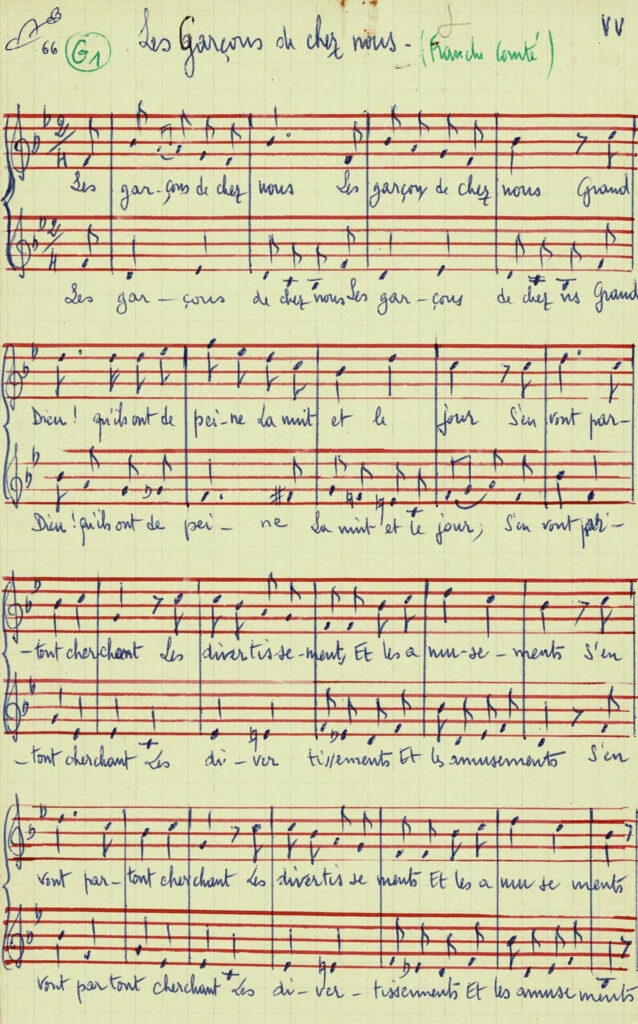 66 G1 Les Garçons de chez nous - (Franche Comté) VV
2/4
Les gar-çons de chez nous Les garçons de chez nous Grand
2/4
Les gar-çons de chez nous Les gar-çons de chez ns Grand
Dieu! qu'ils ont de pei-ne La nuit et le jour S'en vont par-
Dieu! qu'ils ont de pei-ne La nuit et le jour, S'en vont par-
-tout cherchant Les divertis-se-ments, Et les a mu-se-ments S'en
-tout cherchant Les di-ver tissements Et les amusements S'en
vont par-tout cherchant Les divertis se ments Et les a mu se ments
vont partout cherchant Les di-ver-tissements Et les amuse ments